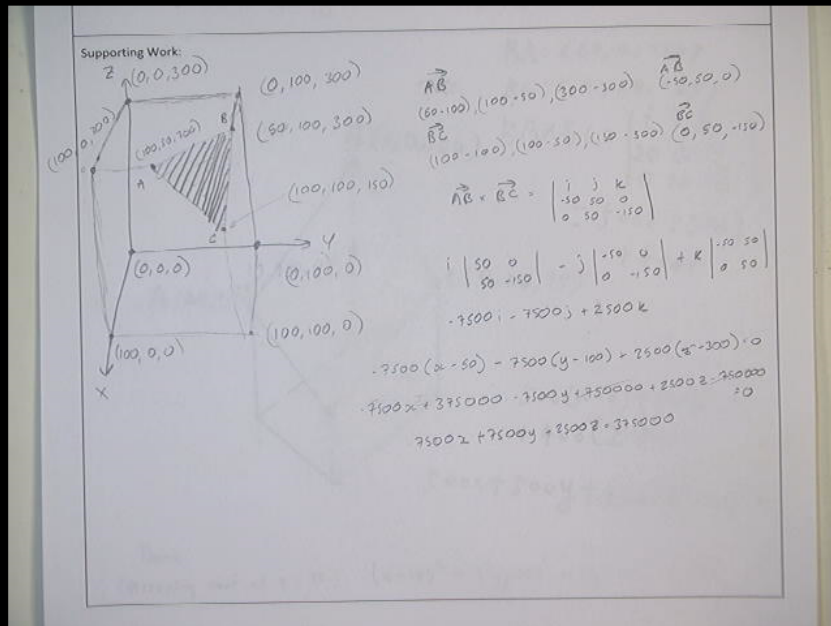 Supporting Work:
Z (0,0,300)
(0,100,300)
(100,0,300)
(100,50,300)
B
(50,100,300)
A
(100,100,150)
C
Y
(0,0,0)
(0,100,0)
(100,100,0)
(100,0,0)
X
AB
(50-100),(100-50),(300-300)
AB
(-50,50,0)
BC
(100-100),(100-50),(150-300)
BC
(0,50,-150)
AB × BC = | i j k |
-50 50 0
0 50 -150
i | 50 0 | - j | -50 0 | + k | -50 50 |
50 -150 0 -150 0 50
-7500i - 7500j + 2500k
-7500(x-50) - 7500(y-100) - 2500(z-300) = 0
-7500x + 375000 - 7500y + 750000 + 2500z - 750000
= 0
7500x + 7500y - 2500z = 375000